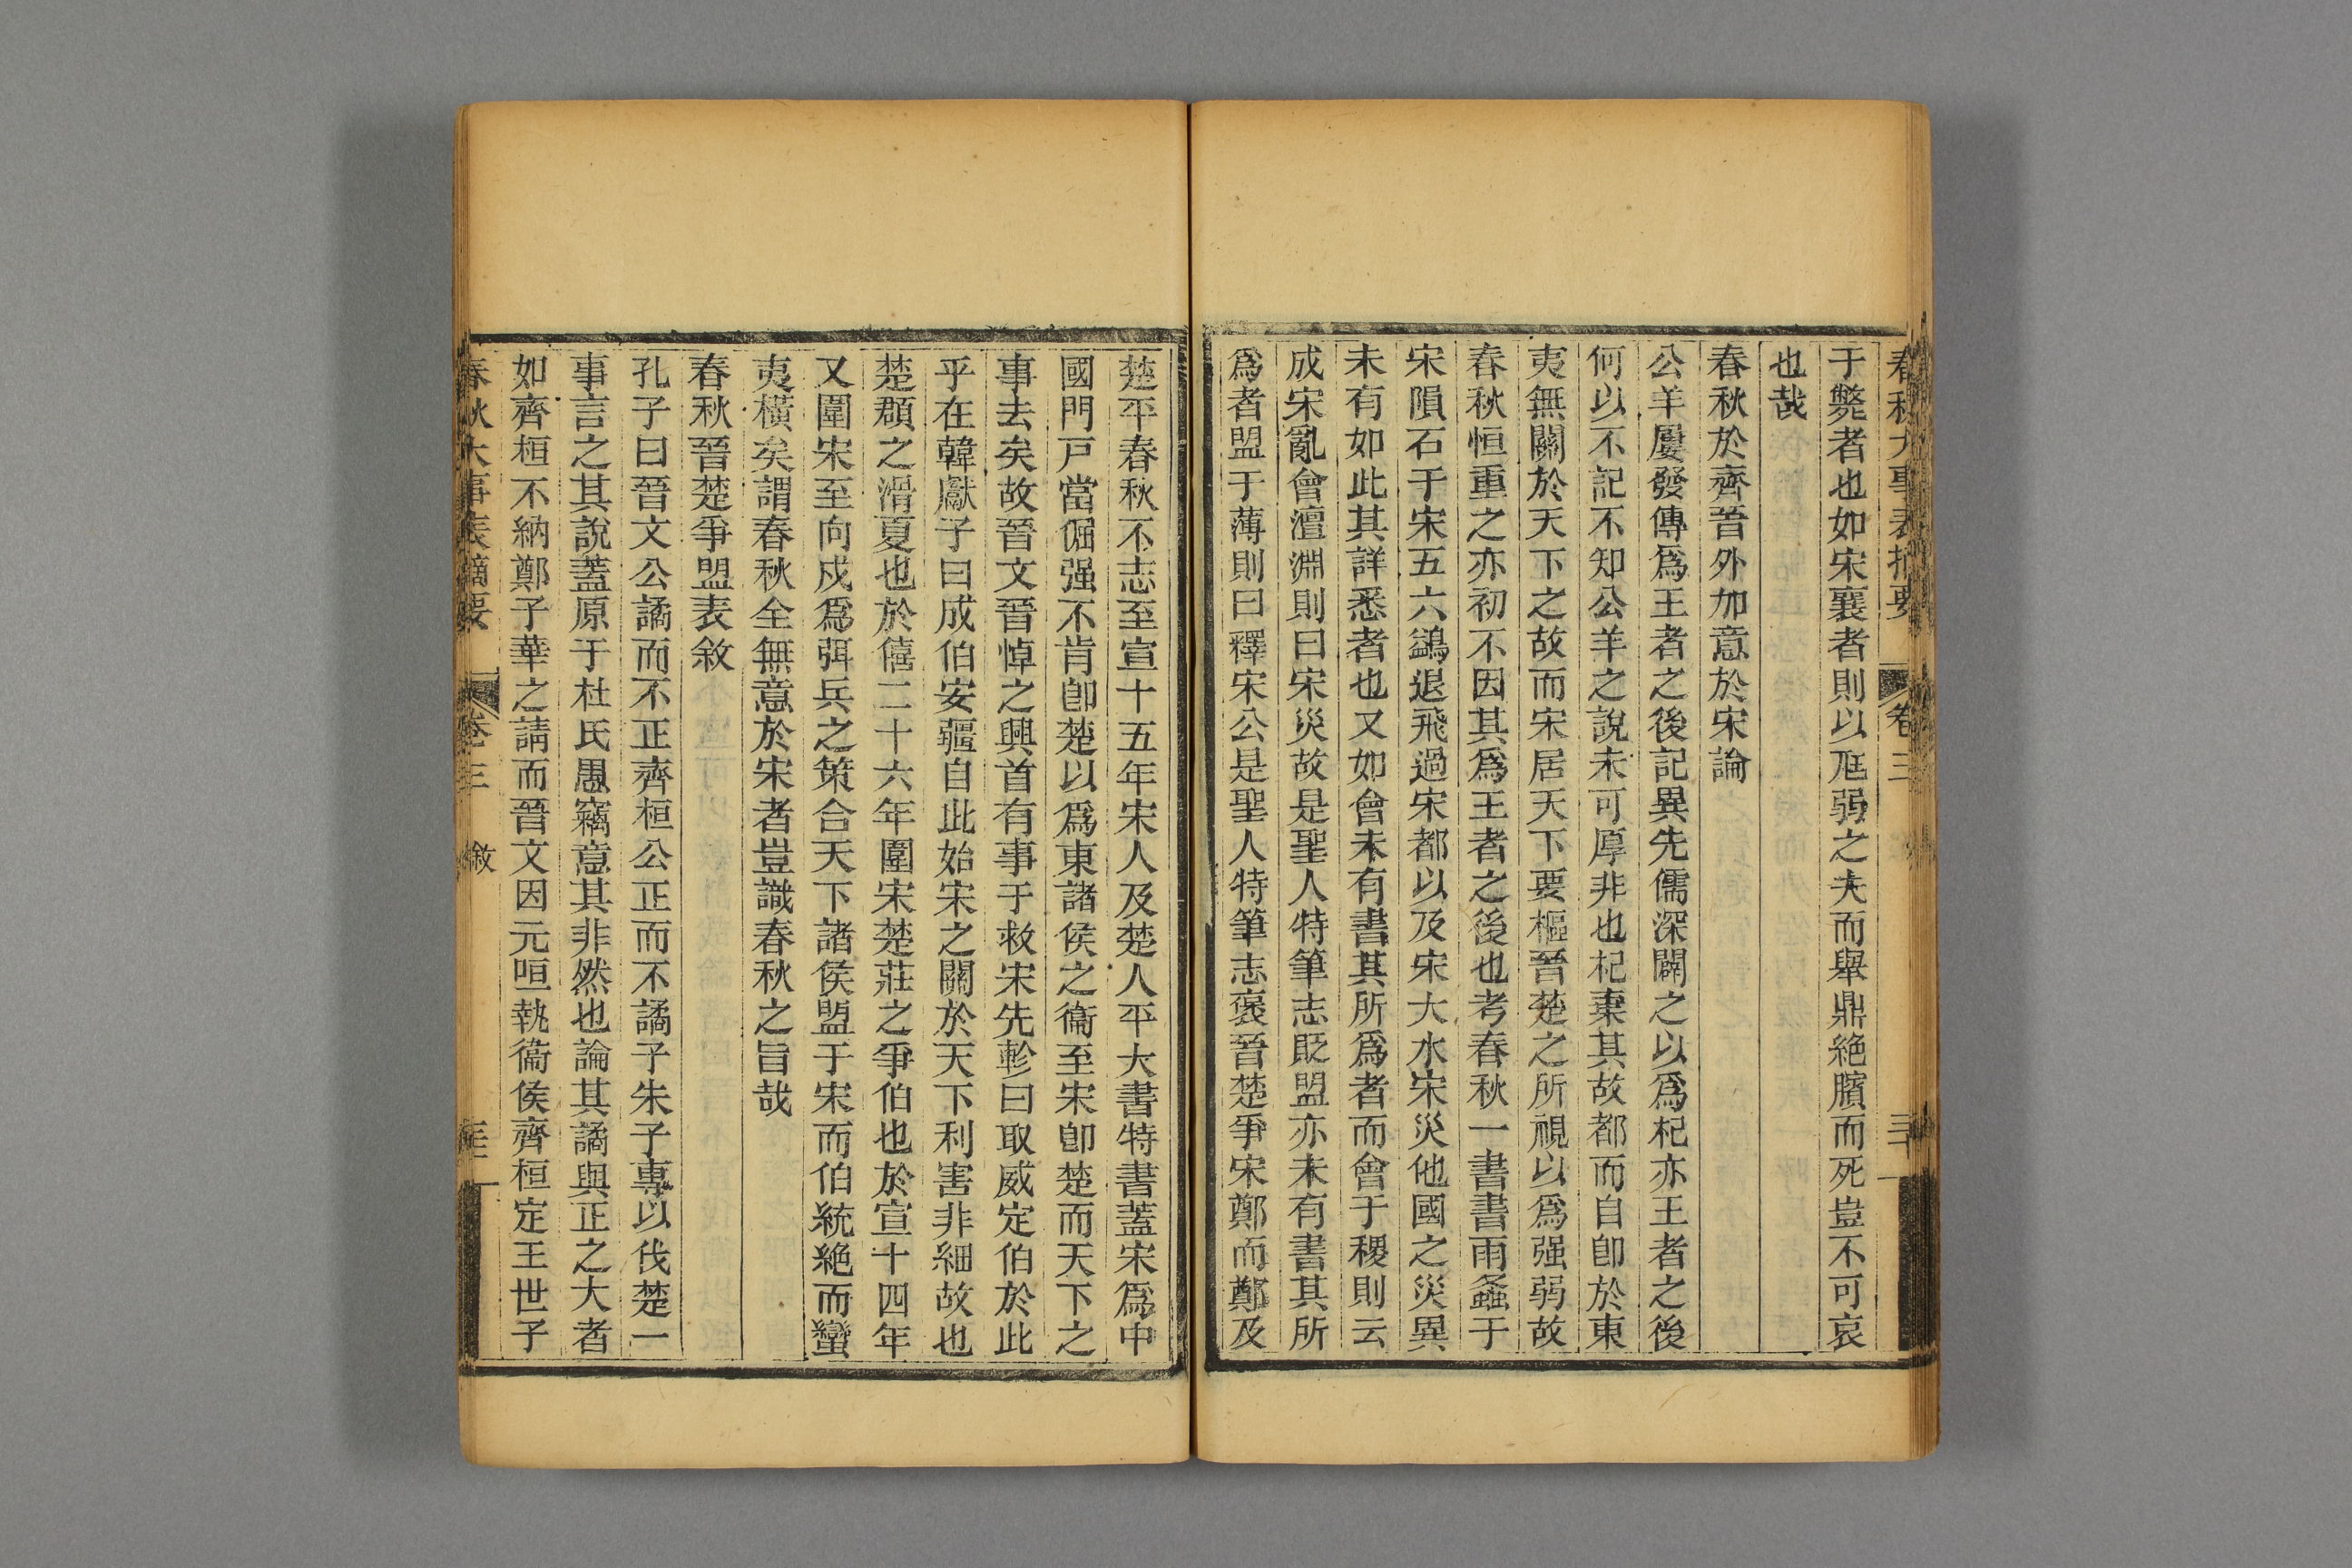 春秋大事表摘要 卷三 三十一
于斃者也如宋襄者則以尫弱之夫而舉鼎絕臏而死豈不可哀
也哉
春秋於齊晉外加意於宋論
公羊屢發傳爲王者之後記異先儒深闢之以爲杞亦王者之後
何以不記不知公羊之說未可厚非也杞棄其故都而自卽於東
夷無關於天下之故而宋居天下要樞晉楚之所視以爲强弱故
春秋恒重之亦初不因其爲王者之後也考春秋一書書雨螽于
宋隕石于宋五六鷁退飛過宋都以及宋大水宋災他國之災異
未有如此其詳悉者也又如會未有書其所爲者而會于稷則云
成宋亂會澶淵則曰宋災故是聖人特筆志貶盟亦未有書其所
爲者盟于薄則曰釋宋公是聖人特筆志褒晉楚爭宋鄭而鄭及
楚平春秋不志至宣十五年宋人及楚人平大書特書蓋宋爲中
國門戸當倔强不肯卽楚以爲東諸侯之衞至宋卽楚而天下之
事去矣故晉文晉悼之興首有事于救宋先軫曰取威定伯於此
乎在韓獻子曰成伯安疆自此始宋之關於天下利害非細故也
楚頵之滑夏也於僖二十六年圍宋楚莊之爭伯也於宣十四年
又圍宋至向戍爲弭兵之策合天下諸侯盟于宋而伯統絕而蠻
夷橫矣謂春秋全無意於宋者豈識春秋之旨哉
春秋晉楚爭盟表敘
孔子曰晉文公譎而不正齊桓公正而不譎子朱子專以伐楚一
事言之其說蓋原于杜氏愚竊意其非然也論其譎與正之大者
如齊桓不納鄭子華之請而晉文因元咺執衞侯齊桓定王世子
春秋大事表摘要 卷三 敘